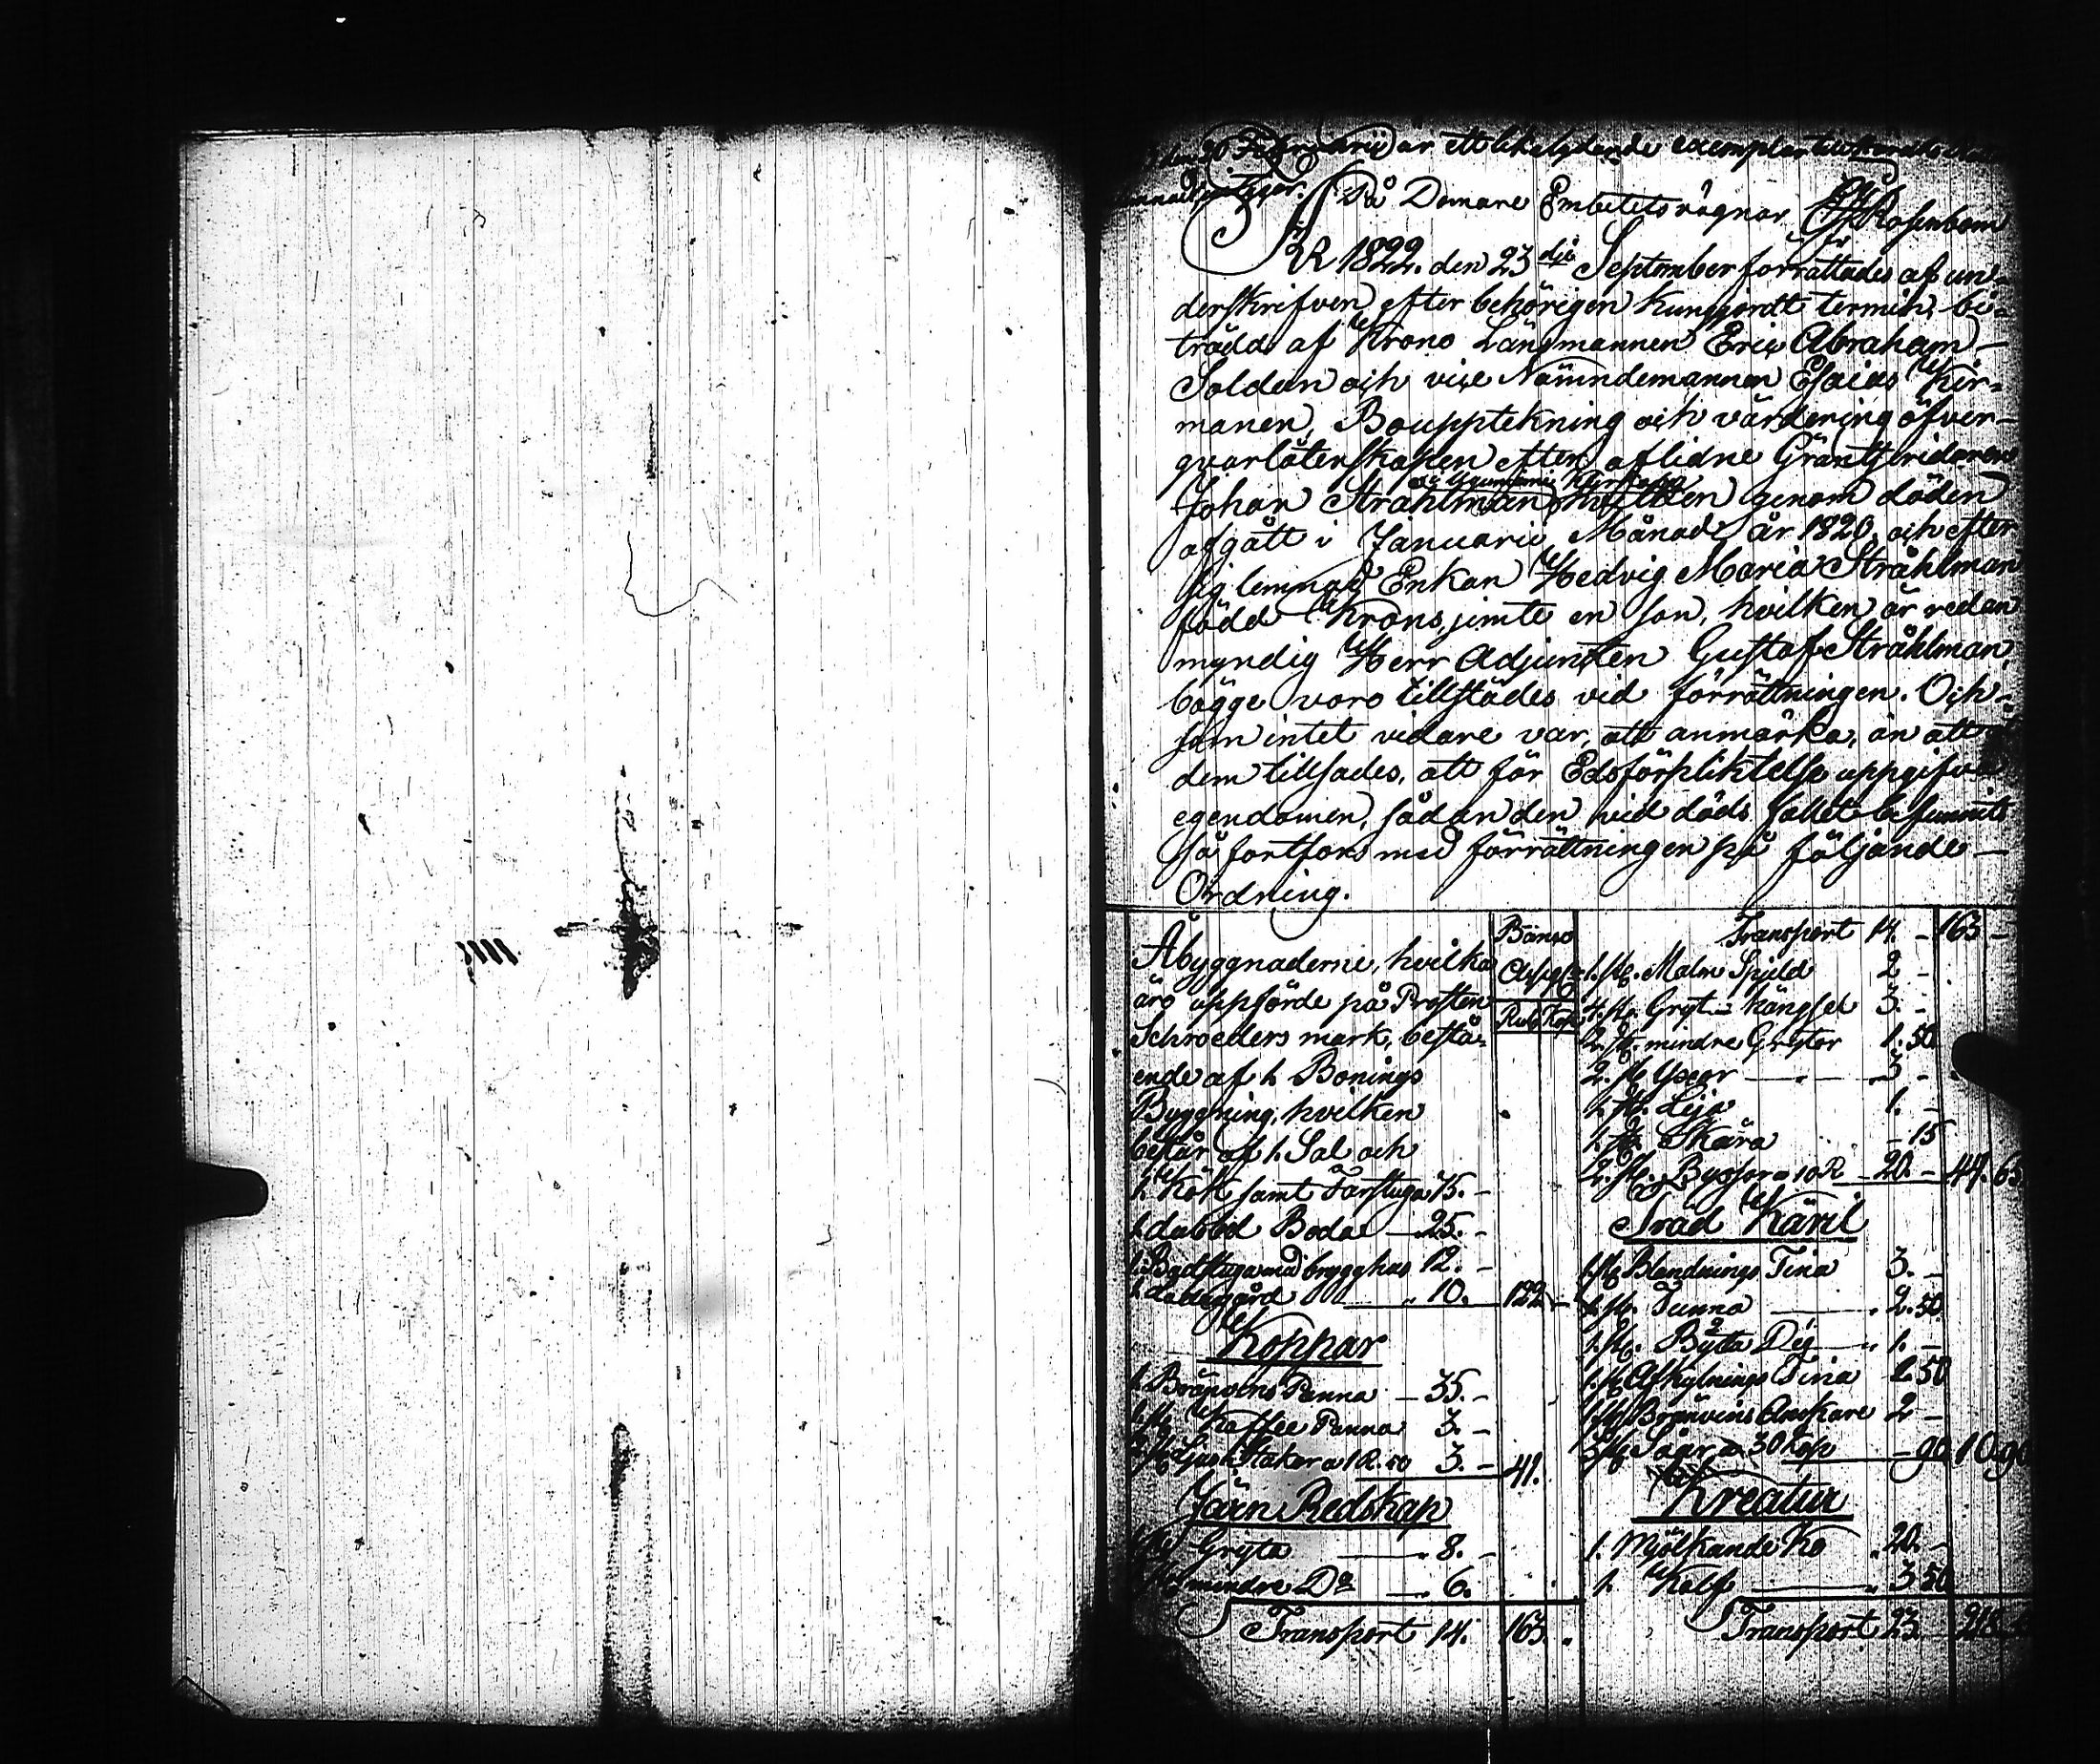 den 30 Februarii är ett lika lydande exemplar
På Domare Embetets vägnar Rosenbom
ÅR 1822. den 23dje September förrättades af un-
derskrifven efter behörigen kungjordt termin, bi-
trädd af Krono Länsmannen Eric Abraham
Soldan och vice Nämndemannen Esaias Kir-
manen, Bouppteckning och värdering öfver
qvarlåtenskapen efter aflidne Gräntzridaren
Johan Stråhlman genom döden
afgått i Januarii Månad år 1820 och efter
sig lemnad Enkan Hedvig Maria Stråhlman
född Krons, jemte en son, hvilken är redan
myndig Herr Adjuncten Gustaf Stråhlman,
bägge voro tillstädes vid förrättningen. Och
som intet vidare var att anmärka, än att
dem tillsades, att för Edsförpliktelse uppgifva
egendomen, sådan den vid döds fallet befunnits
så fortfors med förrättningen på följande
Ordning.
Banco
Assign.
Rub. Kop.
Åbyggnaderne, hvilka
äro uppförde på Prosten
Schroeders mark, bestå-
ende af 1. Bonings
Byggning, hvilken
består af 1. Sal och
1. Kök samt Farstuga 75. -
1. dubbel Boda 25. -
1. Badstuga med brygghus 12. -
1. Ladugård 10. 122 -
Koppar
1. Bränvins Panna 35. -
1. st. Kaffee Panna 3. -
2. st. Ljus Stakar a 1 R. 50 3. - 41.
Järn Redskap
1. st. Gryta 8. -
1. st. mindre Do 6.
Transport 14. 163.
Transport 14. - 163 -
1. st. Malm Spjeld 2 -
4. st. Gryt-Hängslet 3. -
2. st. mindre Grytor 1. 50
2. st. Yxor 3 -
1. st. Lija 1. -
1. st. Skära - 15
2. st. Byssor a 10 R 20. - 44. 65
Träd Käril
1. st. Blandnings Tina 3. -
1. st. Tunna 2. 50
1. st. Bytta Deg 1. -
1. st. Afkylnings Tina 1. 50
1. st. Bränvins Anckare 2 -
3. st. Såar a 30 Kop - 90 10. 90
Kreatur
1. Mjölkande Ko 20. -
1. Kalf 3 50
Transport 23. 218